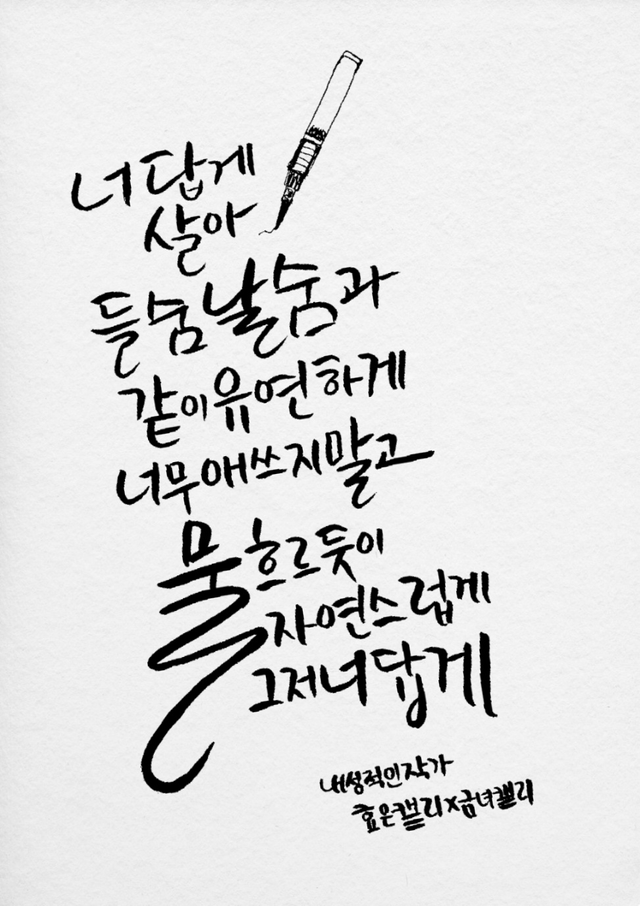 너답게
살아
들숨날숨과
같이유연하게
너무애쓰지말고
물흐르듯이
자연스럽게
그저너답게
내성적인작가
효은캘리x금녀캘리